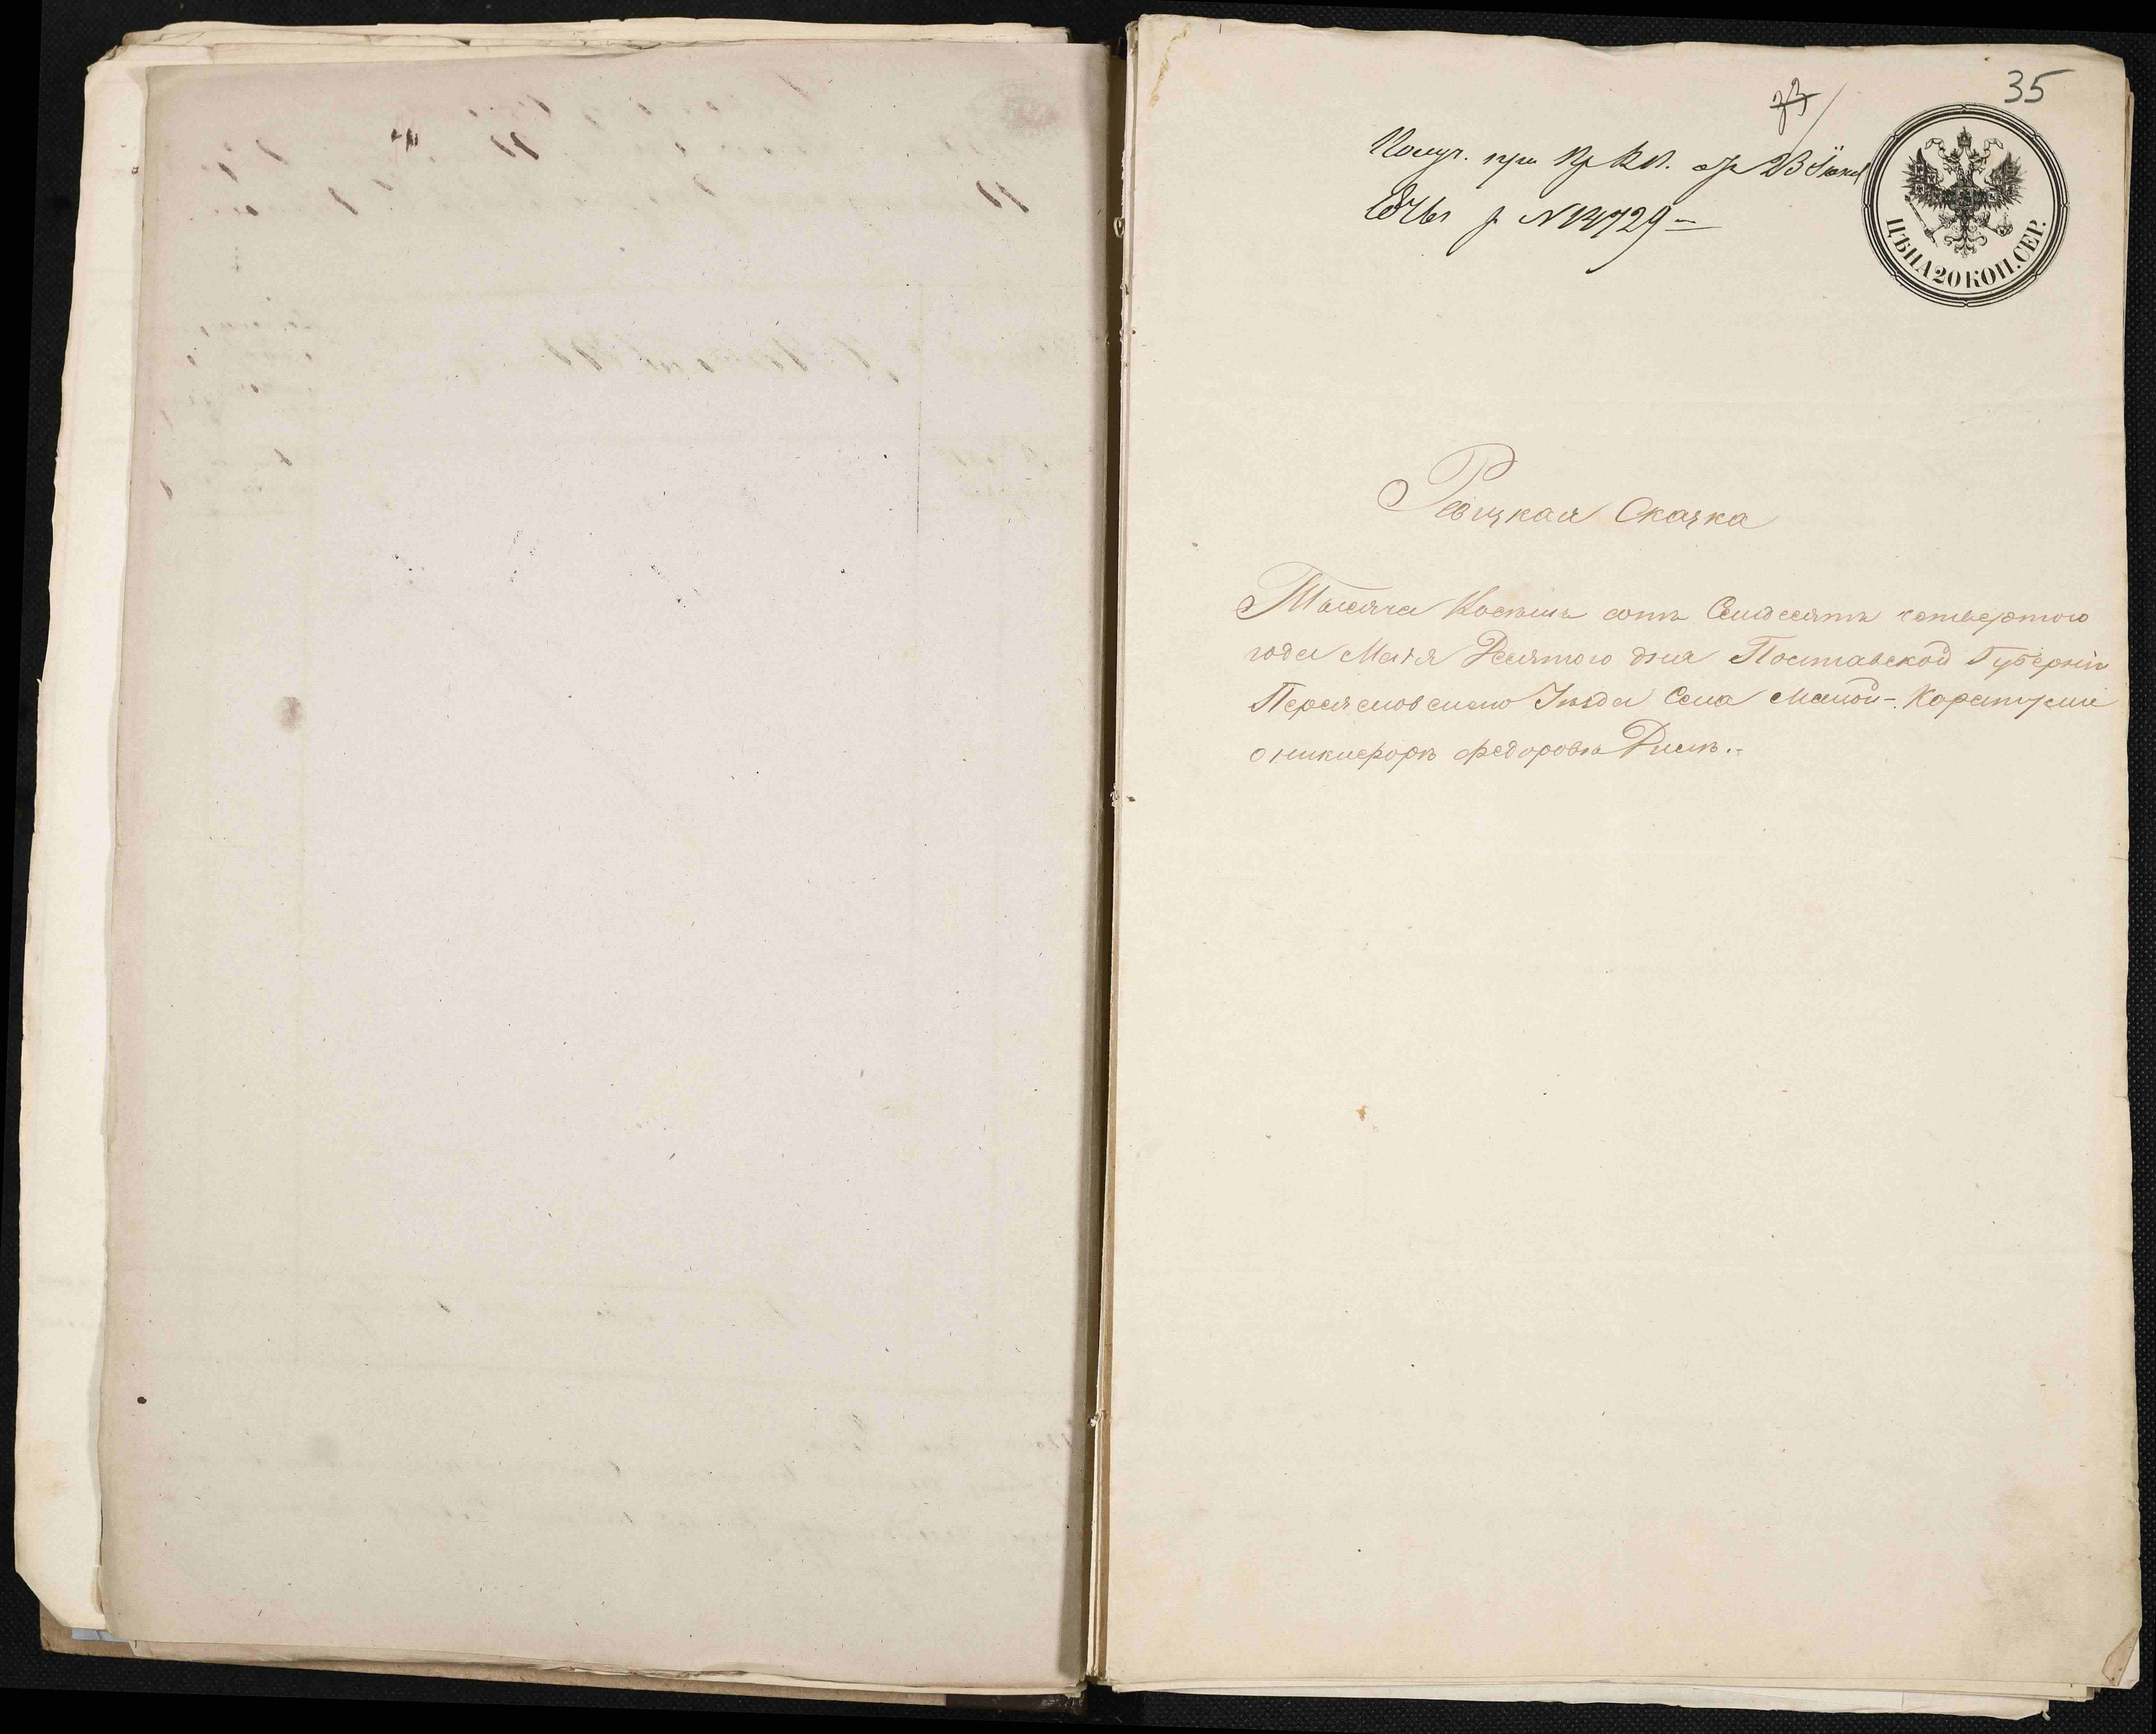 35
Получ. при
№ 14729
ЦѢНА 20 КОП. СЕР.
Ревизкая Сказка
Тысяча Восемь сотъ Семдесятъ четвертого
года Маія Десятого дня Полтавской Губерніи
Переясловского Уѣзда Села Малой-Каратули
о никифорѣ федоровѣ